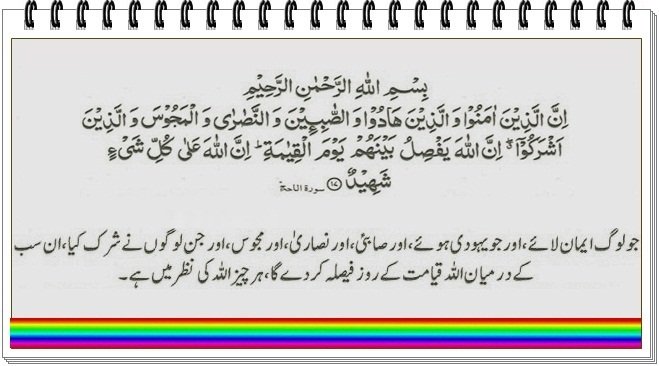 بِسْمِ اللهِ الرَّحْمٰنِ الرَّحِيْمِ
اِنَّ الَّذِيْنَ اٰمَنُوْا وَ الَّذِيْنَ هَادُوْا وَ الصّٰبِـِٕيْنَ وَ النَّصٰرٰى وَ الْمَجُوْسَ وَ الَّذِيْنَ
اَشْرَكُوْۤا ۖۗ اِنَّ اللهَ يَفْصِلُ بَيْنَهُمْ يَوْمَ الْقِيٰمَةِ ؕ اِنَّ اللهَ عَلٰى كُلِّ شَىْءٍ
شَهِيْدٌ ﴿۱۷﴾ سورة الحج
جو لوگ ایمان لائے، اور جو یہودی ہوئے، اور صابئی، اور نصاریٰ، اور مجوس، اور جن لوگوں نے شرک کیا، ان سب
کے درمیان اللہ قیامت کے روز فیصلہ کر دے گا، ہر چیز اللہ کی نظر میں ہے۔